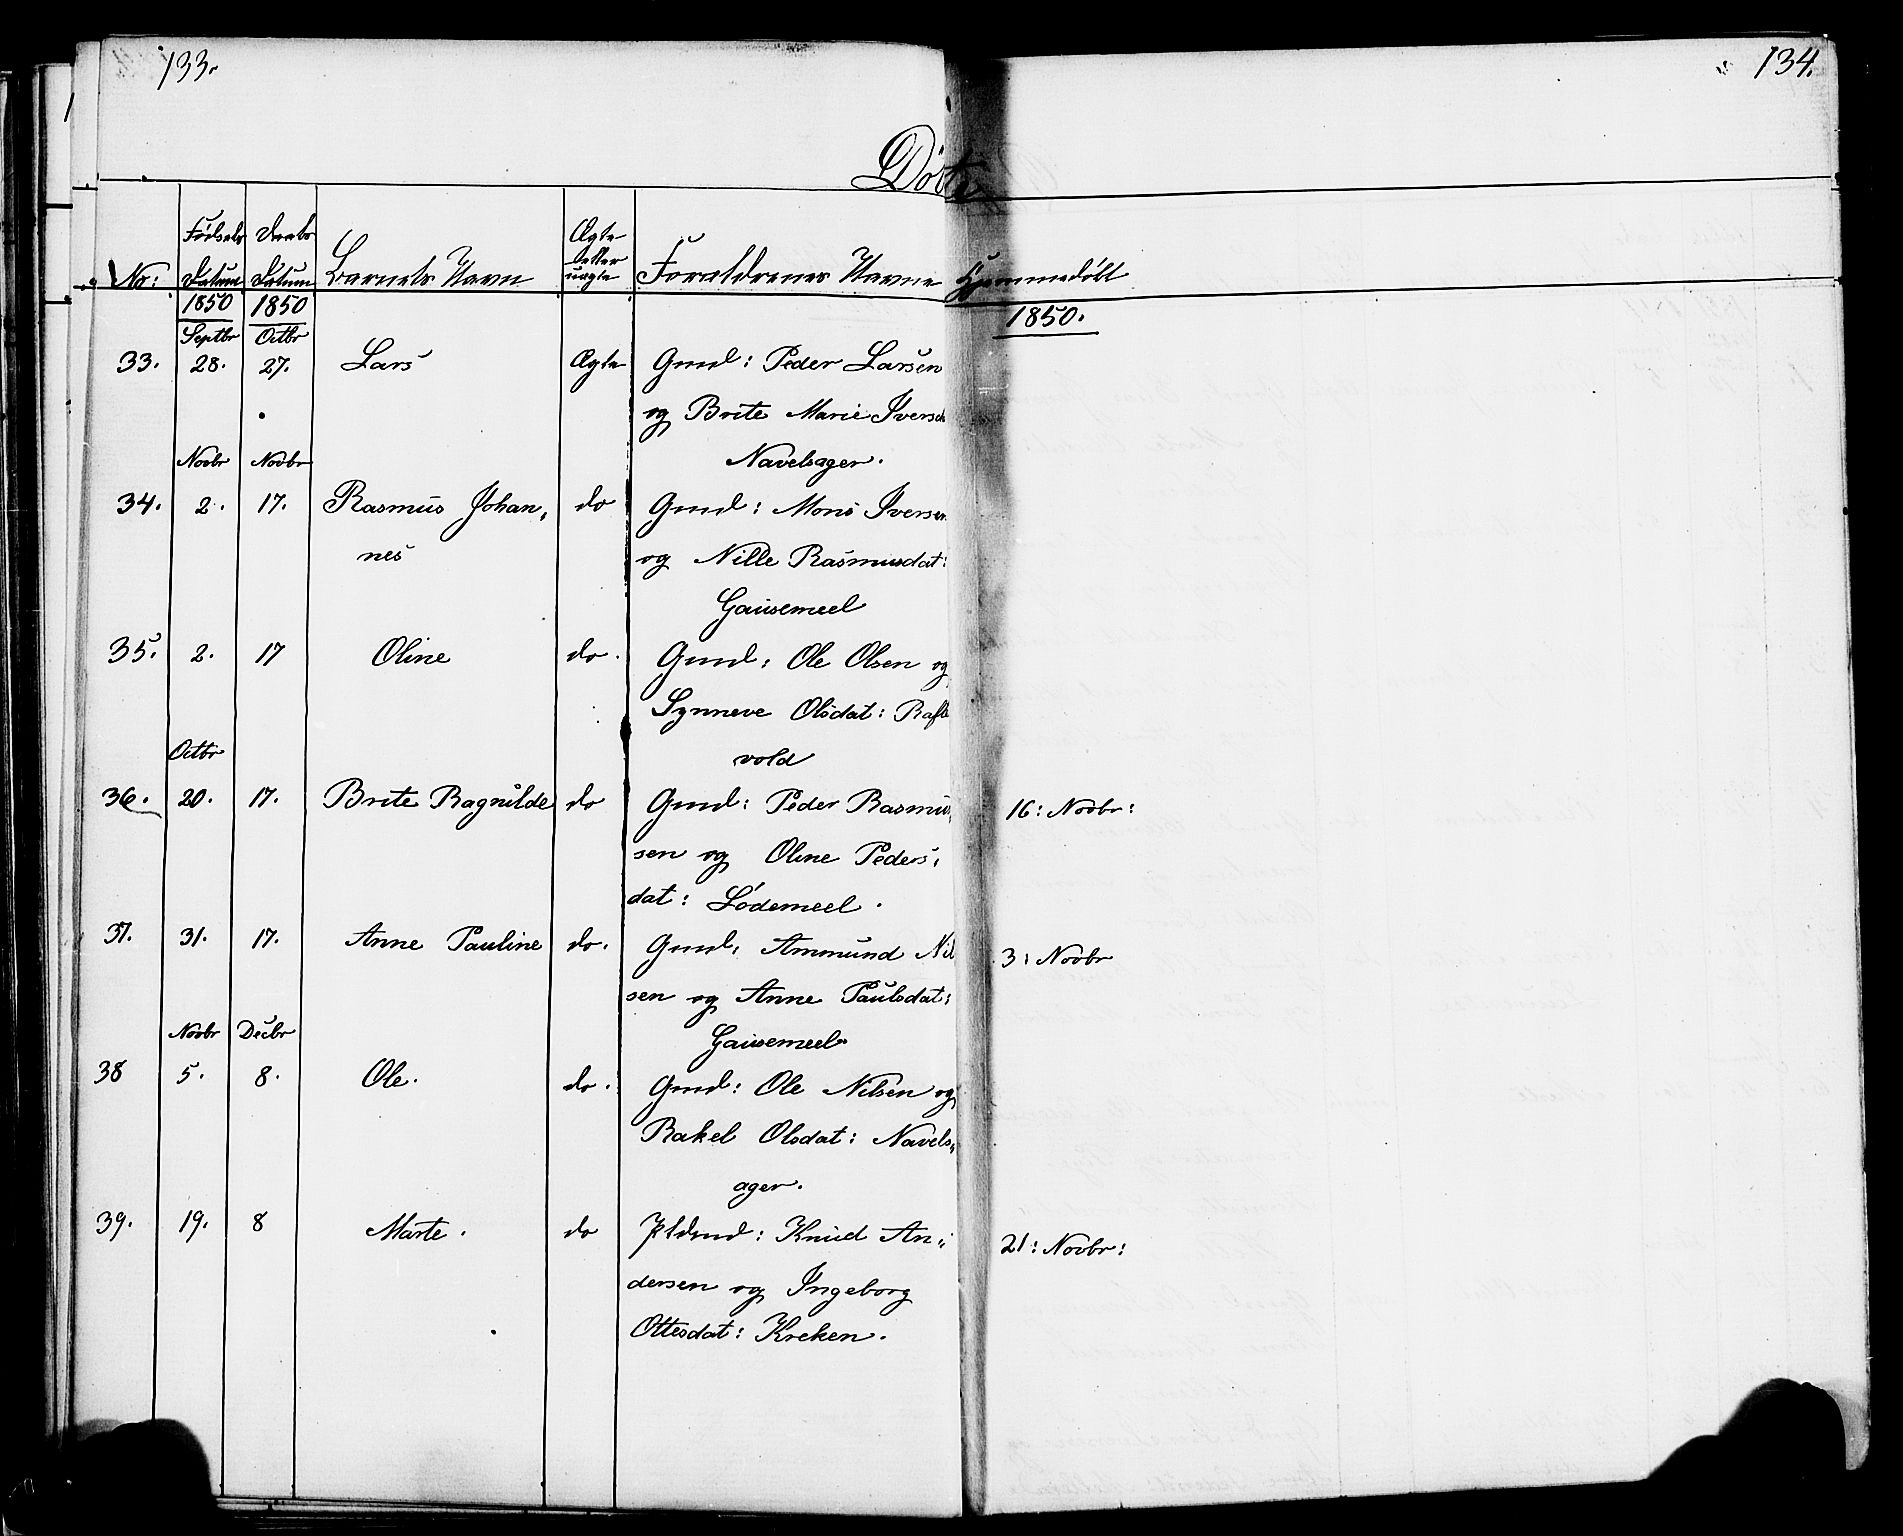 133.
134.
Døbte
No: Fødsels Datum Daabs Datum Barnets Navn Ægte eller uægte Forældrenes Navne Hjemmedøbt
1850 1850 1850.
Septbr Octbr
33. 28. 27. Lars Ægte Gmd: Peder Larsen
og Brite Marie Iversd
Novbr Novbr Navelsager.
34. 2. 17. Rasmus Johan„ do Gmd: Mons Iversen
nes og Nille Rasmusdat:
Gausemeel
35. 2. 17 Oline do. Gmd: Ole Olsen og
Synneve Olsdat: Rafte
Octbr vold
36. 20. 17. Brite Ragnilde do Gmd: Peder Rasmus„ 16: Novbr:
sen og Oline Peders„
dat: Lødemeel.
37. 31. 17. Anne Pauline do. Gmd: Ammund Nil 3: Novbr
sen og Anne Paulsdat:
Novbr Decbr Gausemeel
38 5. 8. Ole. do. Gmd: Ole Nilsen og
Rakel Olsdat: Navels„
ager.
39. 19. 8 Marte. do Pldmd: Knud An„ 21: Novbr:
dersen og Ingeborg
Ottesdat: Kreken.